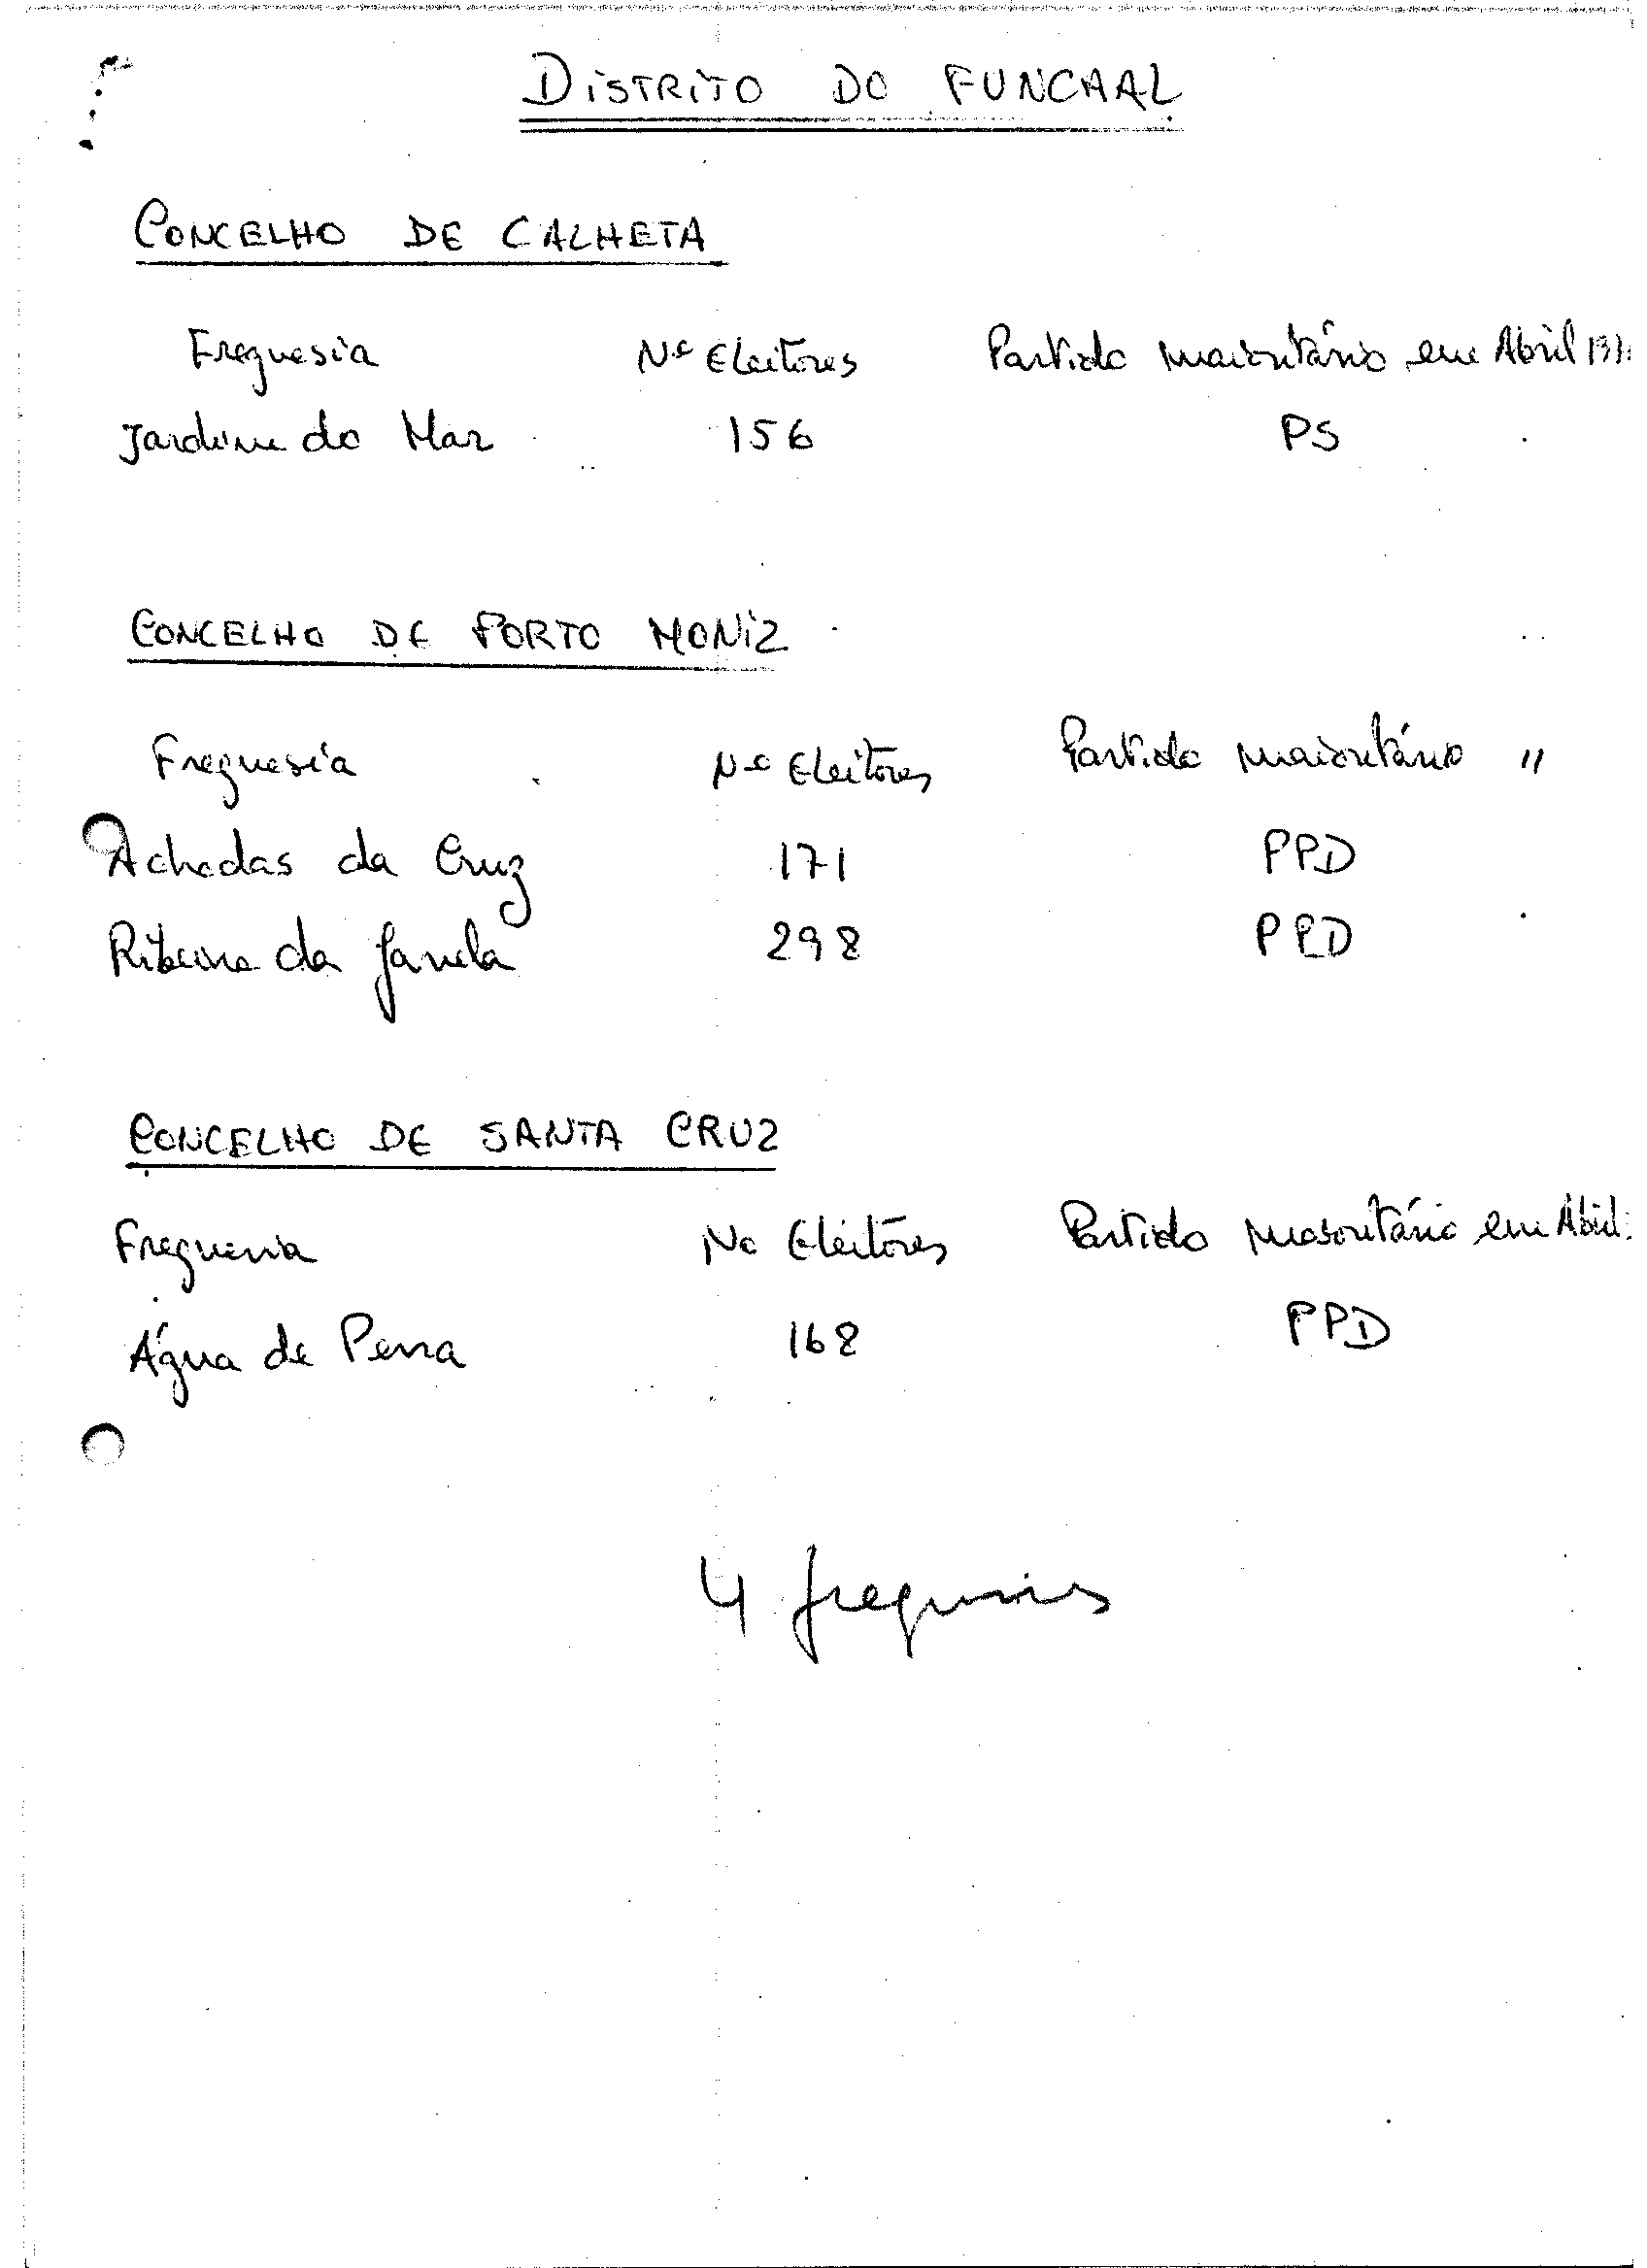 DISTRITO DO FUNCHAL
CONCELHO DE CALHETA
Freguesia Nº Eleitores Partido maioritário em Abril
Jardim do Mar 156 PS
CONCELHO DE PORTO MONIZ
Freguesia Nº Eleitores Partido maioritário "
Achadas da Cruz 171 PPD
Ribeira da Janela 298 PPD
CONCELHO DE SANTA CRUZ
Freguesia No Eleitores Partido maioritário em Abril
Água de Pena 168 PPD
4 freguesias